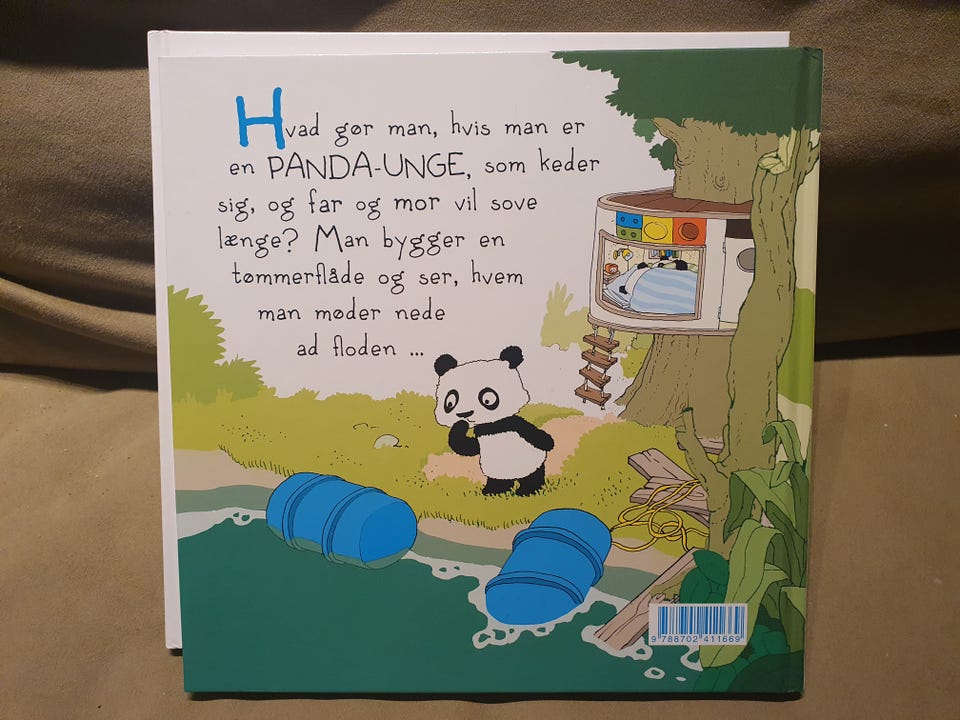 Hvad gør man, hvis man er
en PANDA-UNGE, som keder
sig, og far og mor vil sove
længe? Man bygger en
tømmerflåde og ser, hvem
man møder nede
ad floden ...
9 788702 411669